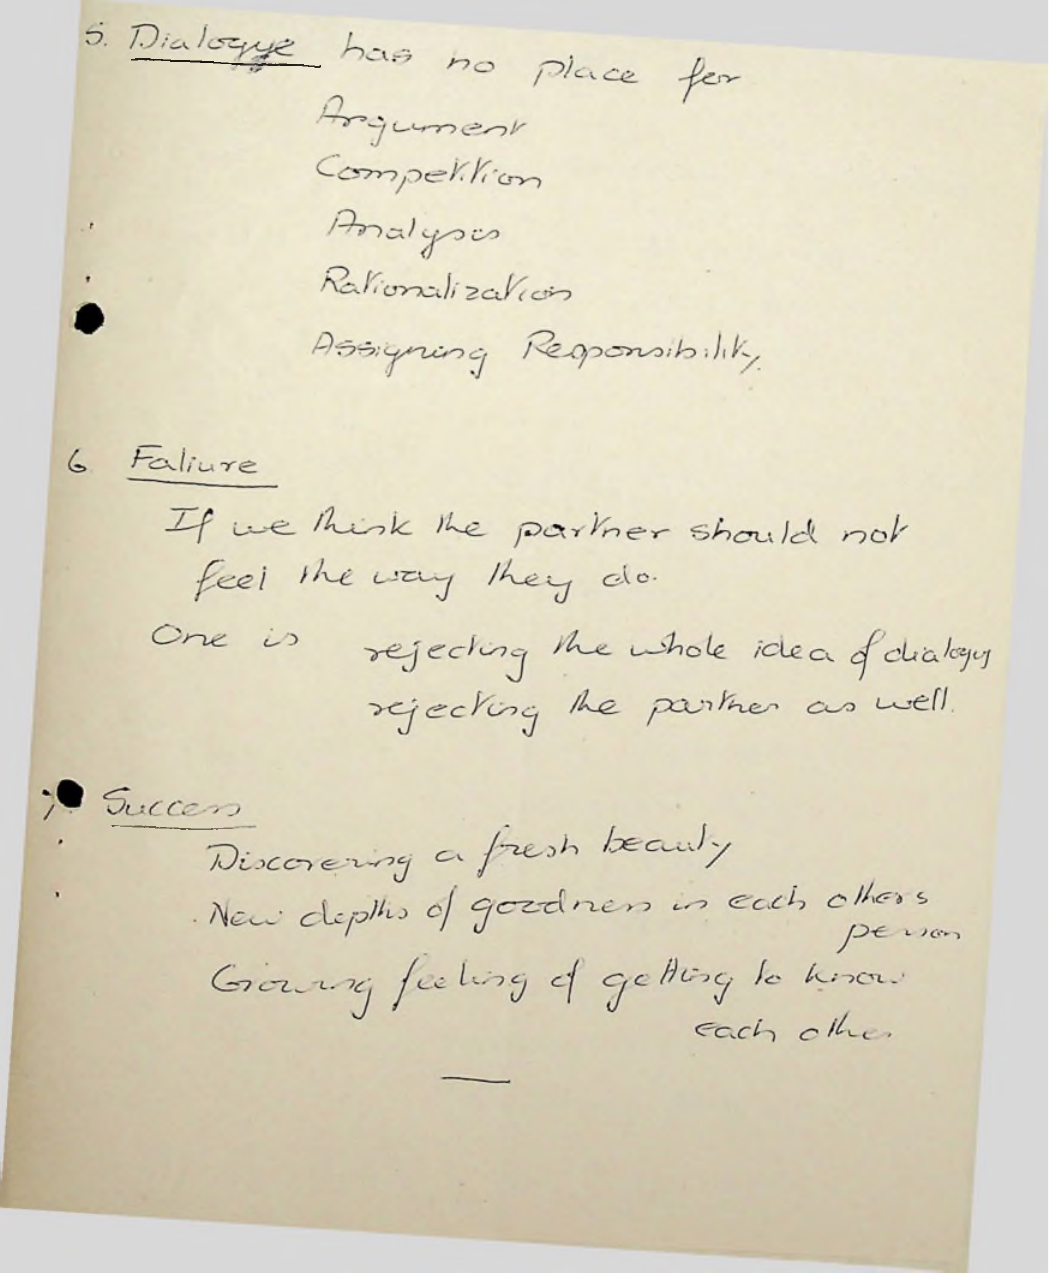 5. Dialogue has no place for
Argument
Competition
Analysis
Rationalization
Assigning Responsibility.
6 Faliure
If we think the partner should not
feel the way they do.
One is rejecting the whole idea of dialogue
rejecting the partner as well.
7. Success
Discovering a fresh beauty
New depths of goodness in each others
person
Growing feeling of getting to know
each other